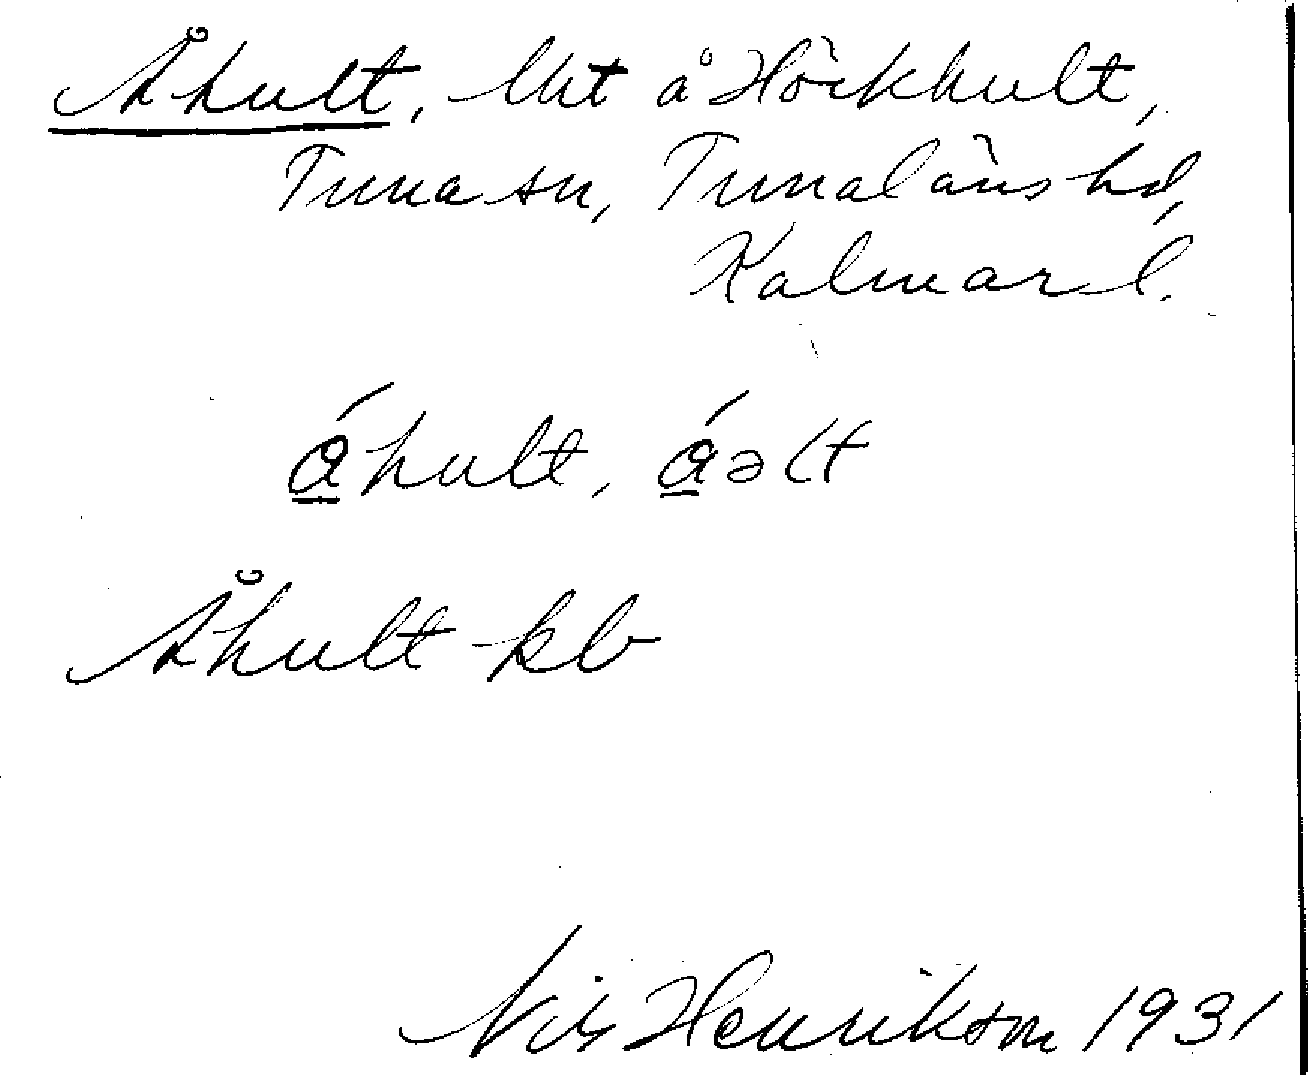 Åhult, lht å Hörkhult,
Tuna sn, Tunaläns hd,
Kalmar l.
á̱hult, á̱əlt
Åhult - kb
Nils Henrikson 1931